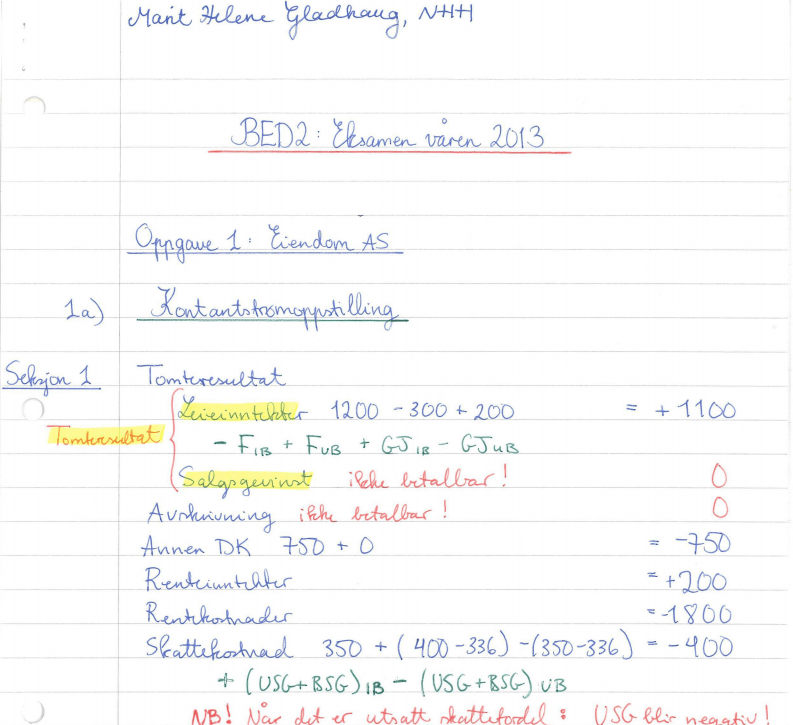 Marit Helene Gladhaug, NHH
BED2: Eksamen våren 2013
Oppgave 1: Eiendom AS
1a) Kontantstrømoppstilling
Seksjon 1 Tomteresultat
Leieinntekter 1200 - 300 + 200 = +1100
Tomteresultat
- F IB + F UB + GJ IB - GJ UB
Salgsgevinst ikke betalbar! 0
Avskrivning ikke betalbar! 0
Annen DK 750 + 0 = -750
Renteinntekter = +200
Rentekostnader = -1800
Skattekostnad 350 + (400-336) - (350-336) = -400
+ (USG+BSG) IB - (USG+BSG) UB
NB! Når det er utsatt skattefordel: USG blir negativ!